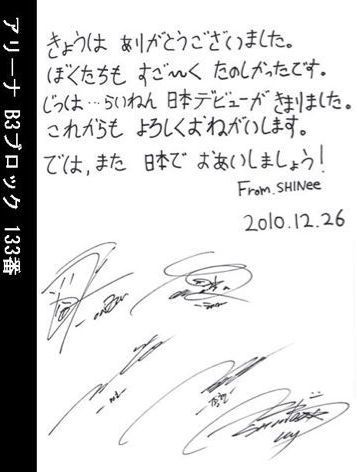 アリーナ B3ブロック 133番
きょうは ありがとうございました。
ぼくたちも すご〜く たのしかったです。
じつは…らいねん 日本デビューが きまりました。
これからも よろしくおねがいします。
では,また 日本で おあいしましょう!
From. SHINee
2010.12.26